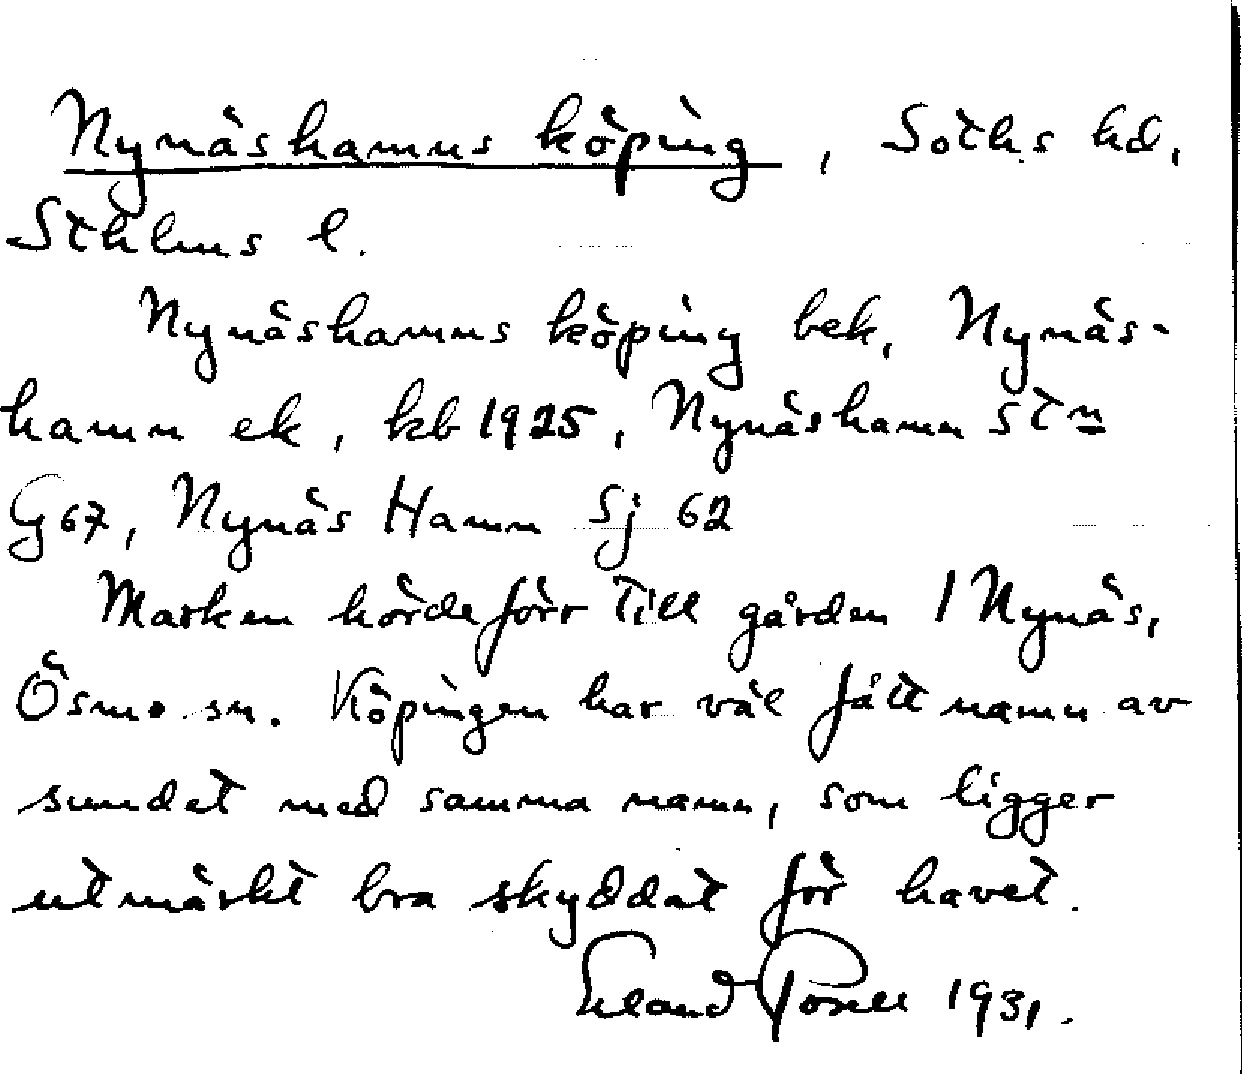 Nynäshamns köping, Soths hd,
Sthlms l.
Nynäshamns köping bek, Nynäs-
hamn ek, kb 1925, Nynäshamn stn
G 67, Nynäs Hamn Sj 62
Marken hörde förr till gården 1 Nynäs,
Ösmo sn. Köpingen har väl fått namn av
sundet med samma namn, som ligger
utmärkt bra skyddat för havet.
Erland Rosell 1931.